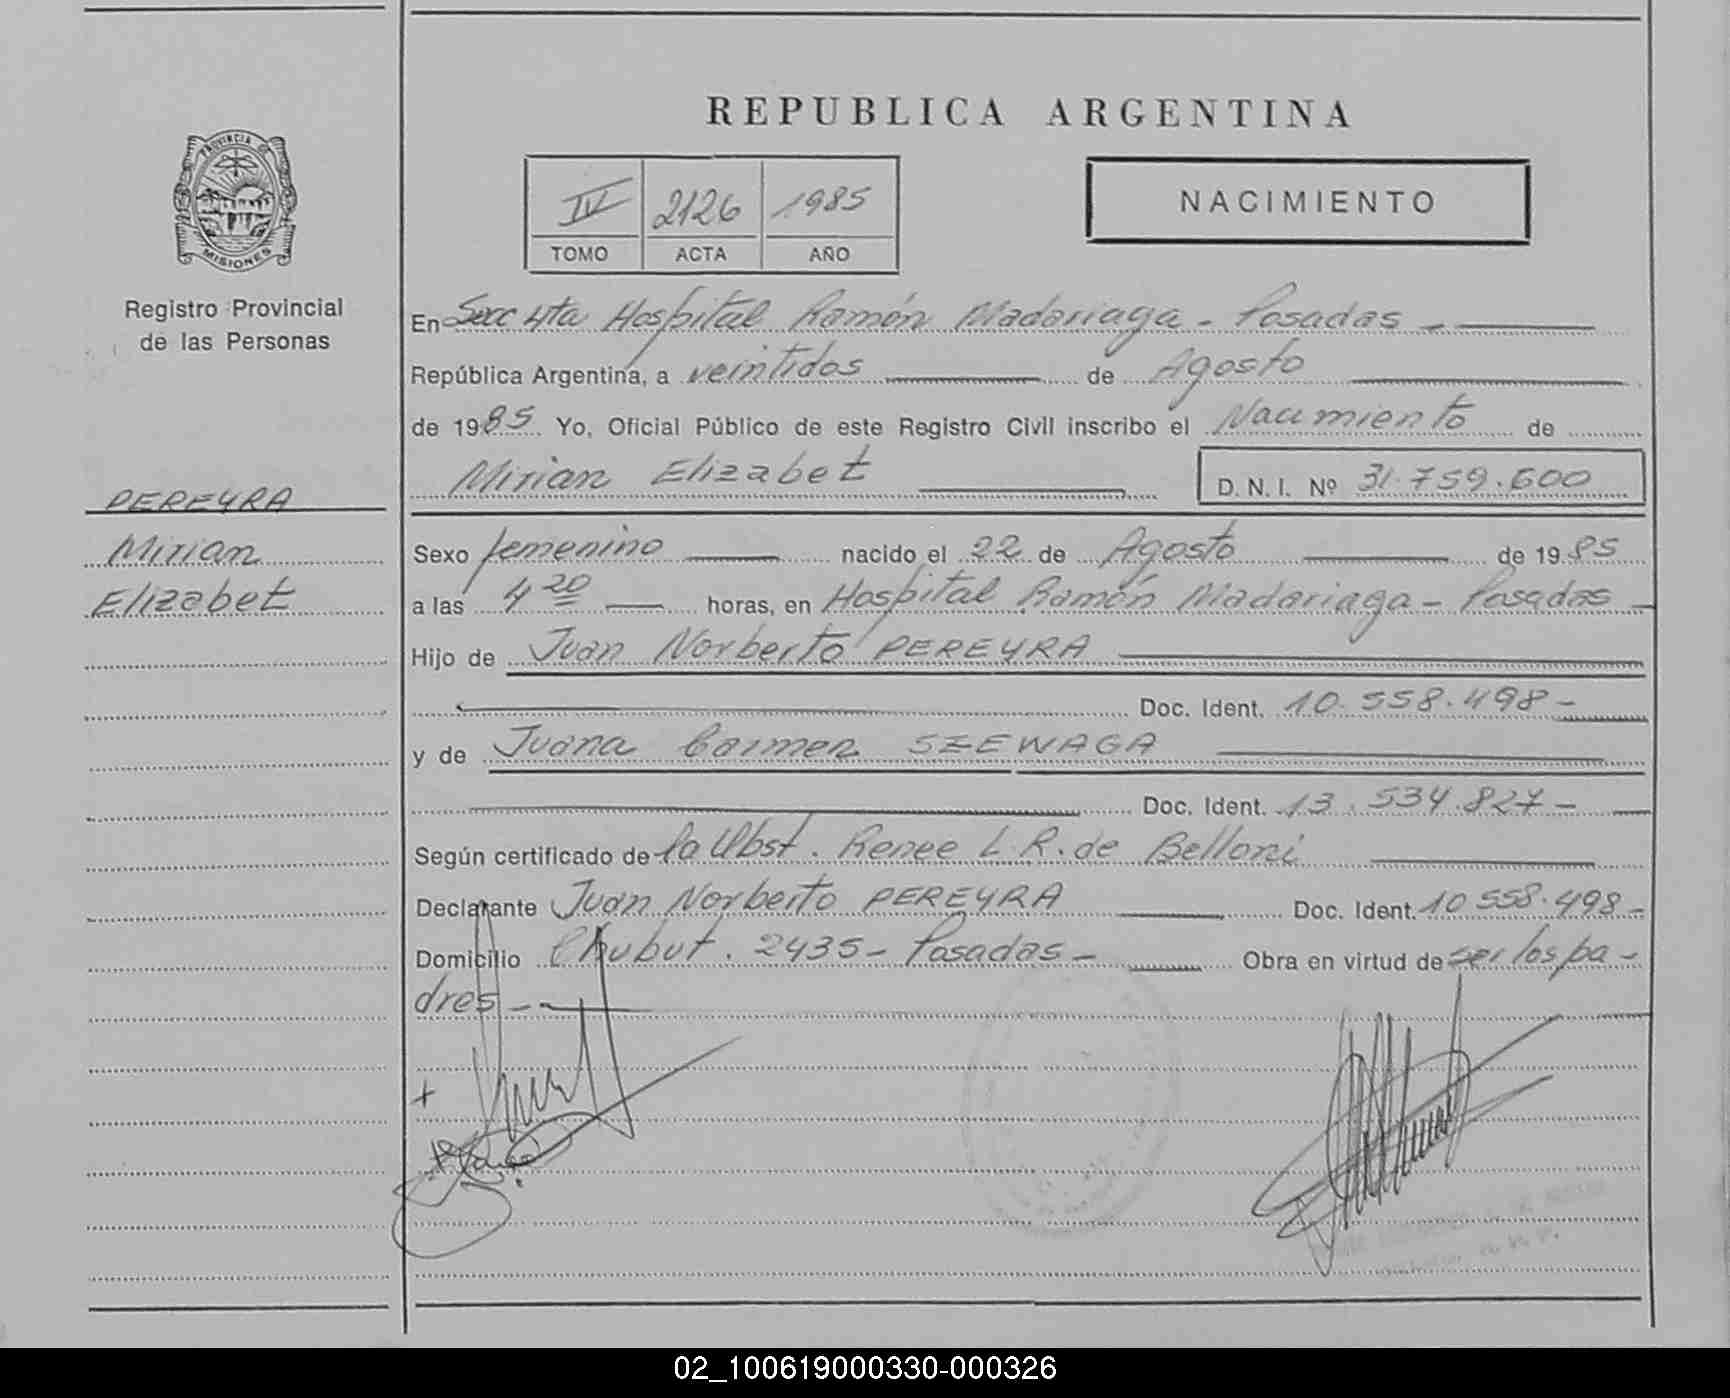 REPUBLICA ARGENTINA
PROVINCIA DE
MISIONES
Registro Provincial
de las Personas
IV 2126 1985
TOMO ACTA AÑO
NACIMIENTO
En Secc 4ta Hospital Ramón Madariaga - Posadas -
República Argentina, a veintidos de Agosto
de 1985 Yo, Oficial Público de este Registro Civil inscribo el Nacimiento de
Mirian Elizabet D. N. I. Nº 31.759.600
PEREYRA
Mirian
Elizabet
Sexo femenino nacido el 22 de Agosto de 1985
a las 4 20 horas, en Hospital Ramón Madariaga - Posadas
Hijo de Juan Norberto PEREYRA
Doc. Ident. 10.558.498 -
y de Juana Carmen SZEWAGA
Doc. Ident. 13.534.827 -
Según certificado de la Obst. Renee L.R. de Belloni
Declarante Juan Norberto PEREYRA Doc. Ident. 10 558.498 -
Domicilio Chubut. 2435 - Posadas - Obra en virtud de ser los pa -
dres -
02_100619000330-000326